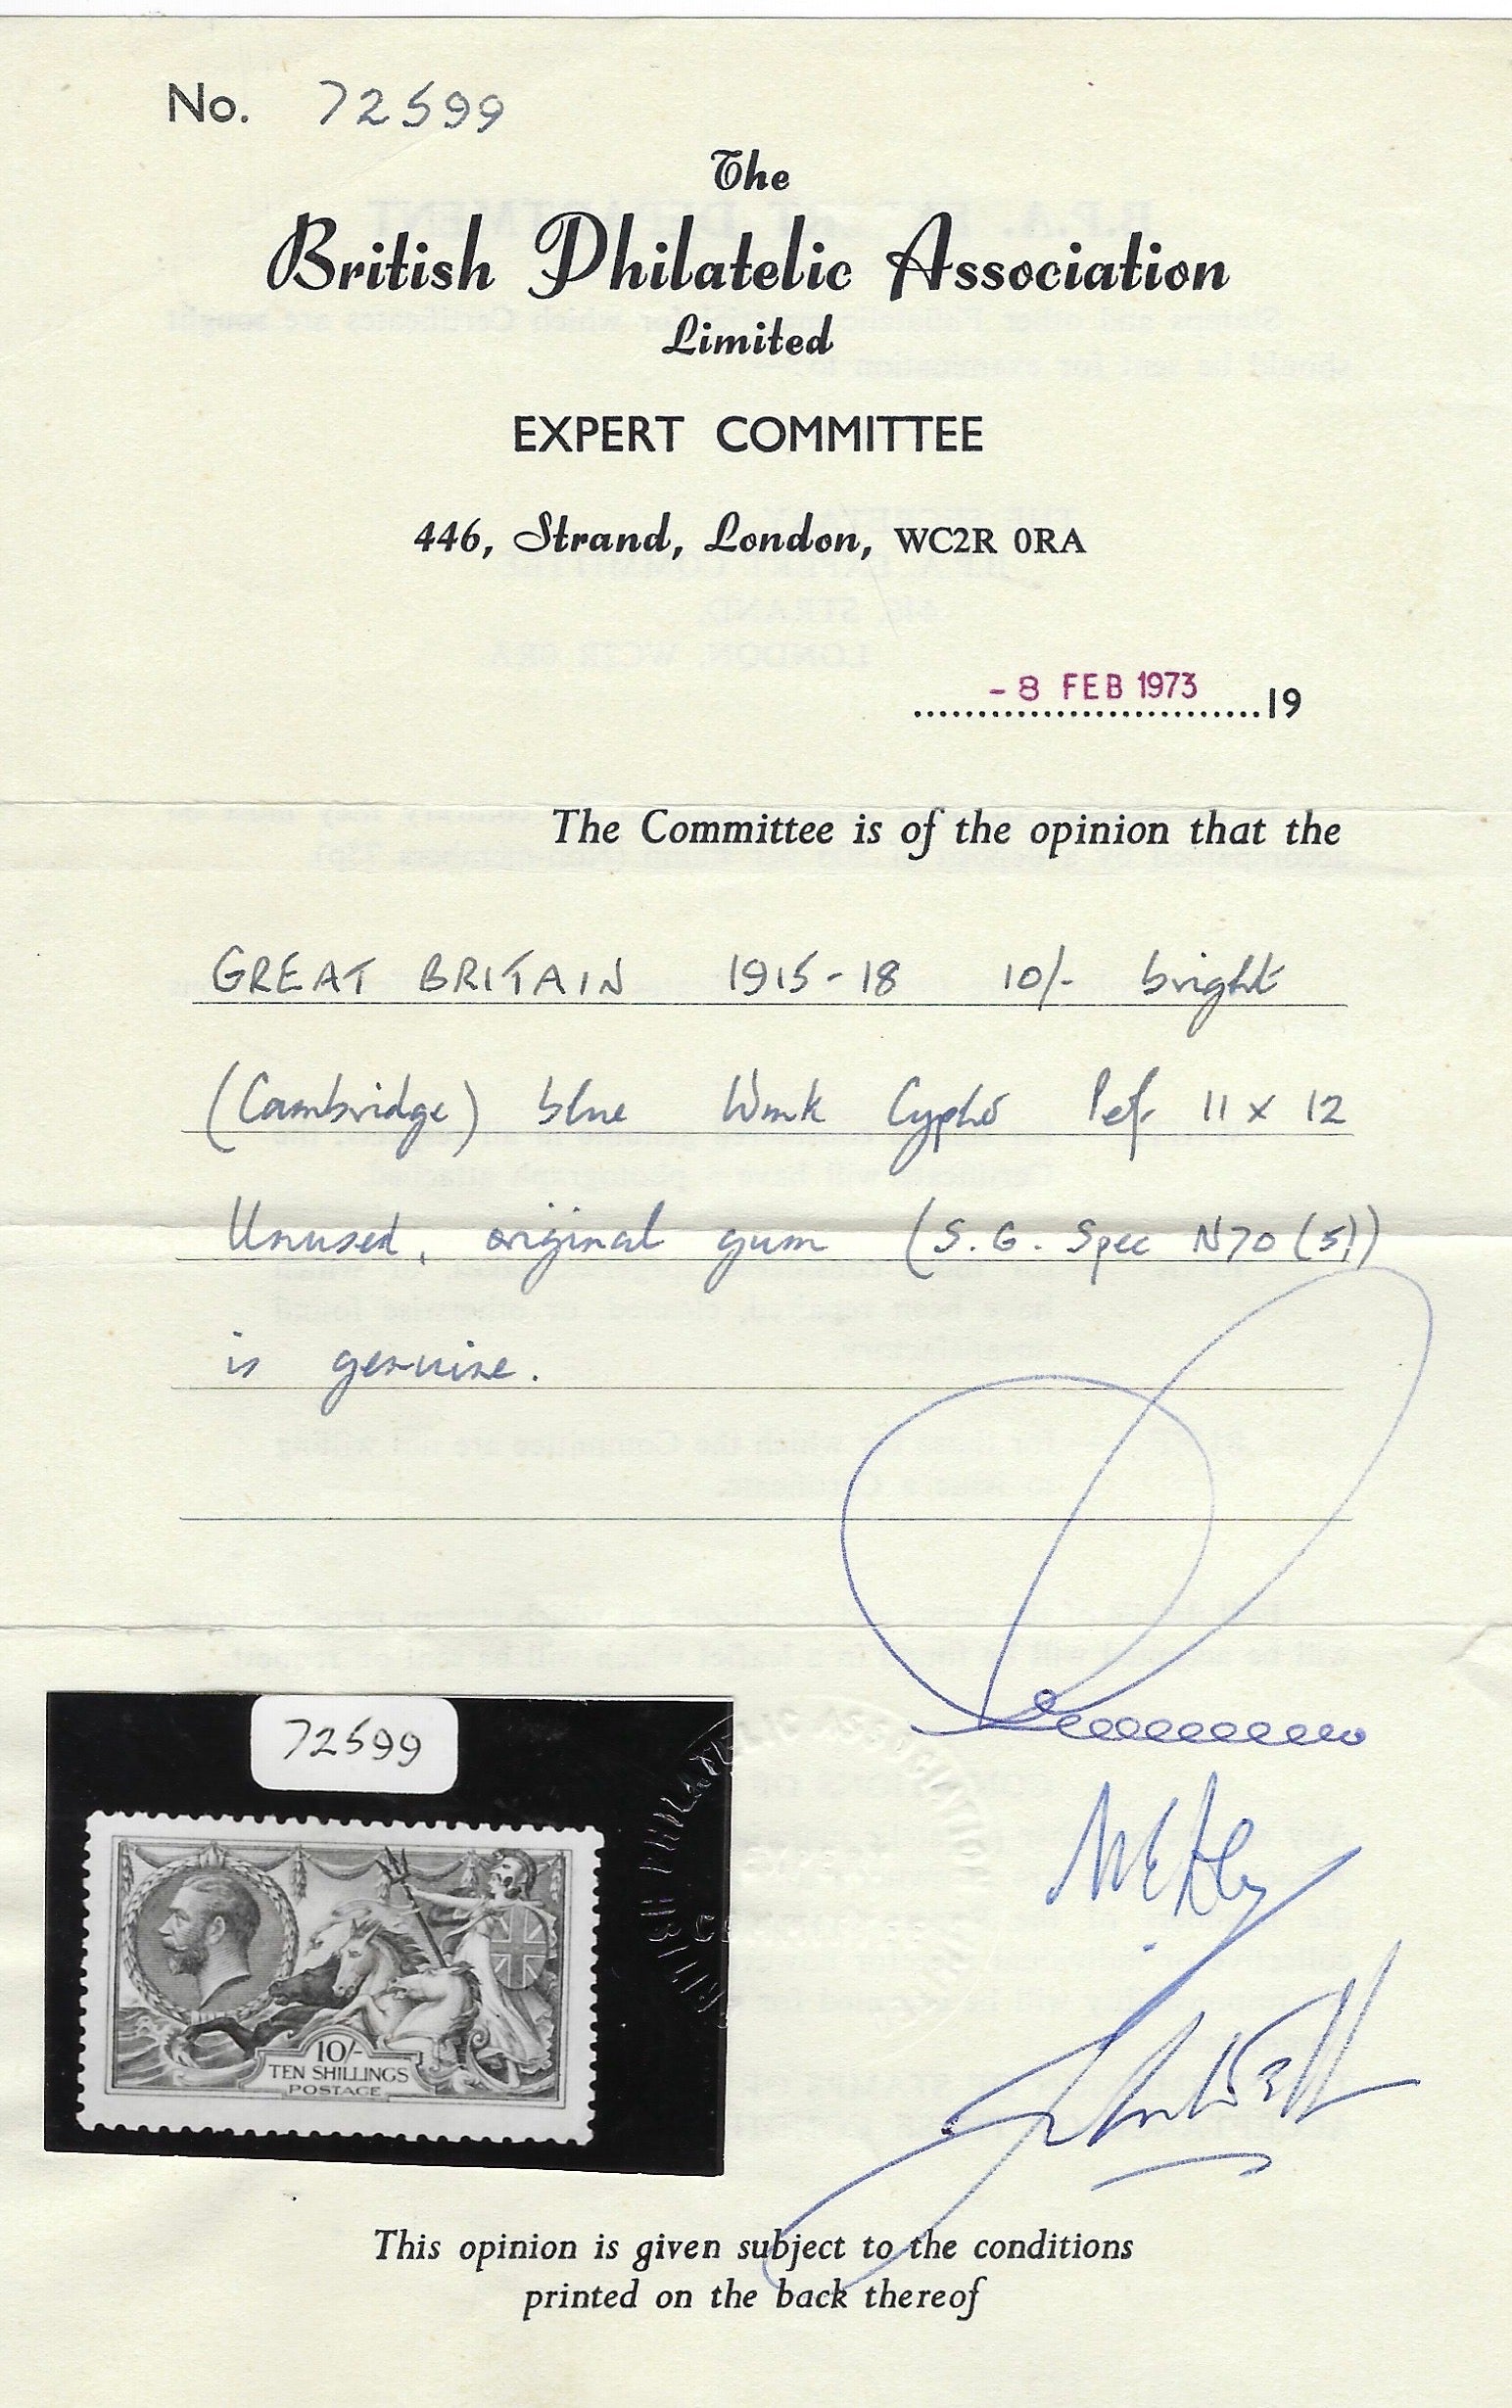 No. 72599
The
British Philatelic Association
Limited
EXPERT COMMITTEE
446, Strand, London, WC2R 0RA
- 8 FEB 1973
19
The Committee is of the opinion that the
GREAT BRITAIN 1915-18 10/- bright
(Cambridge) blue Wmk Cypher Perf. 11 x 12
Unused, original gum (S.G. Spec N70 (5))
is genuine.
72599
10/-
TEN SHILLINGS
POSTAGE
This opinion is given subject to the conditions
printed on the back thereof